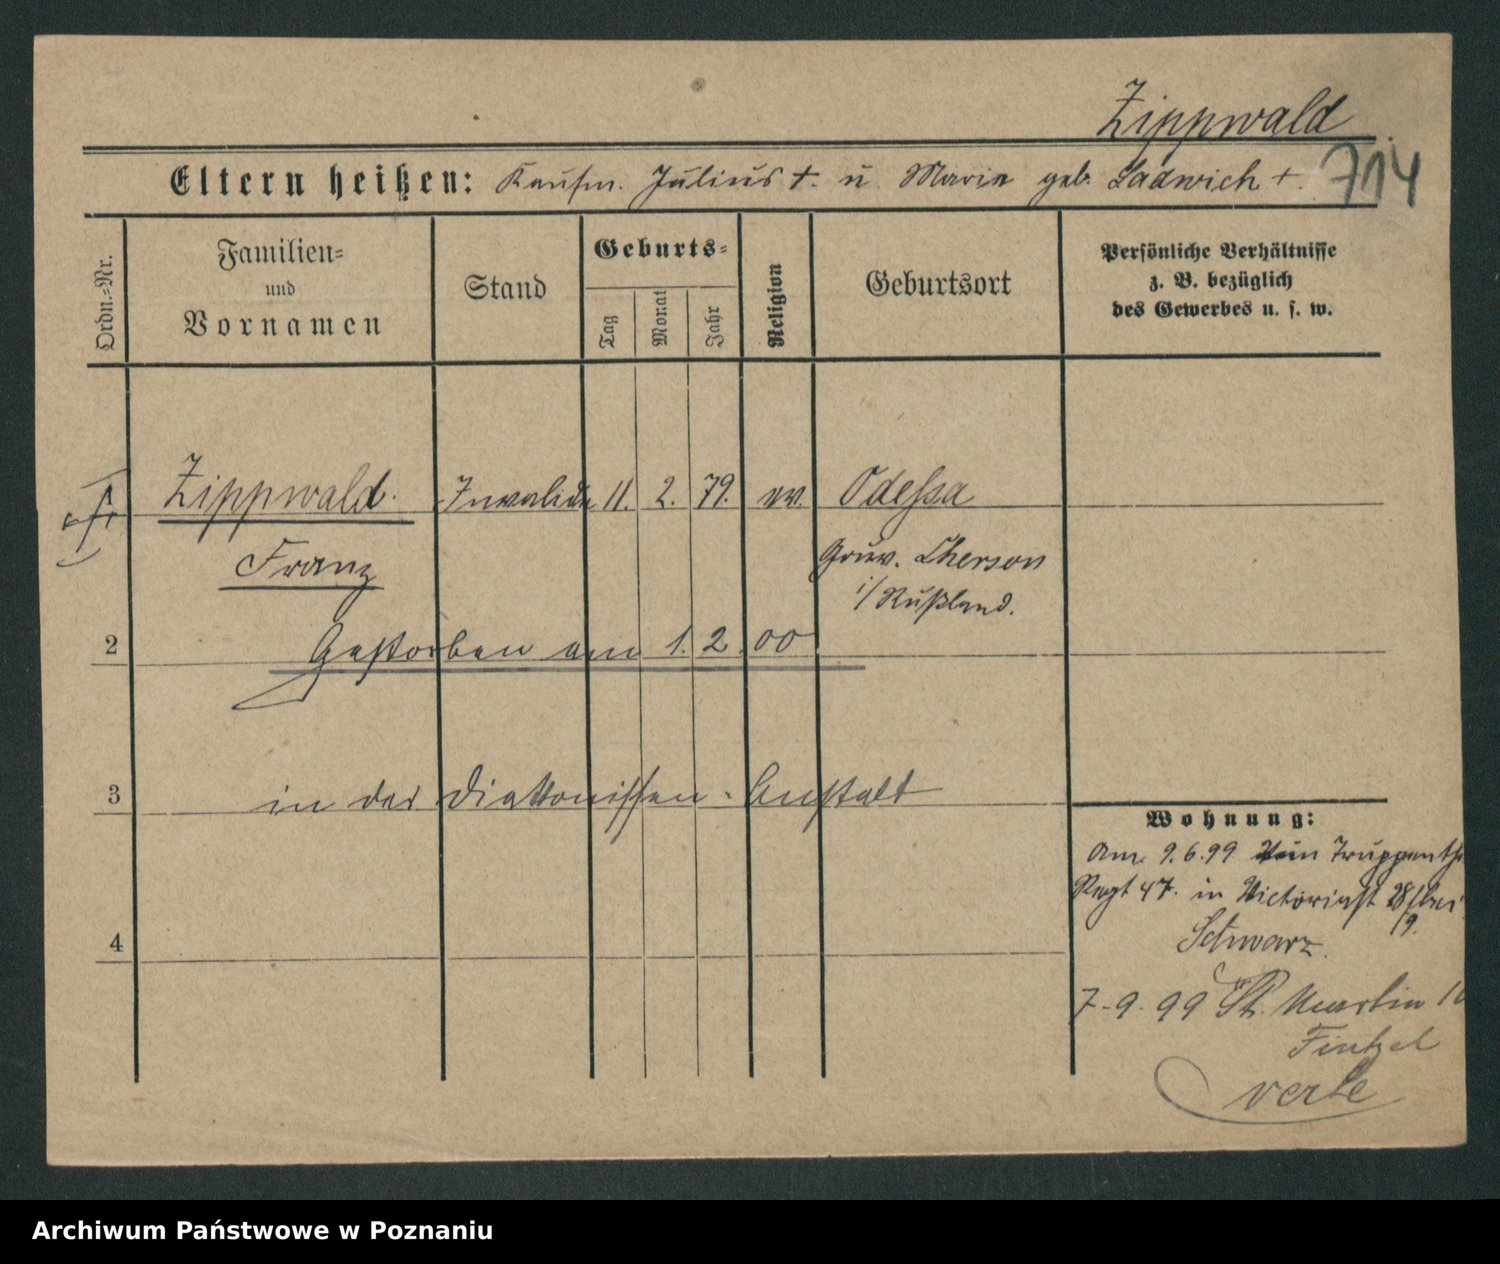 Zippwald
714
Eltern heißen: Kaufm. Julius †. u. Marie geb. Ladwich †.
Ordn.-Nr.
Familien-
und
Vornamen
Stand
Geburts-
Tag
Monat
Jahr
Religion
Geburtsort
Persönliche Verhältnisse
z. B. bezüglich
des Gewerbes u. s. w.
Zippwald. Invalide 11. 2. 79. ev. Odessa
Franz
Gouv. Cherson
i/ Rußland.
2 Gestorben am 1. 2 00
3 in der Diakonissen-Anstalt
4
Wohnung:
Am 9.6.99 Truppenth
Regt 47. in Victoriast 28 bei
Schwarz.
7-9-99 St. Martin
Fintzel